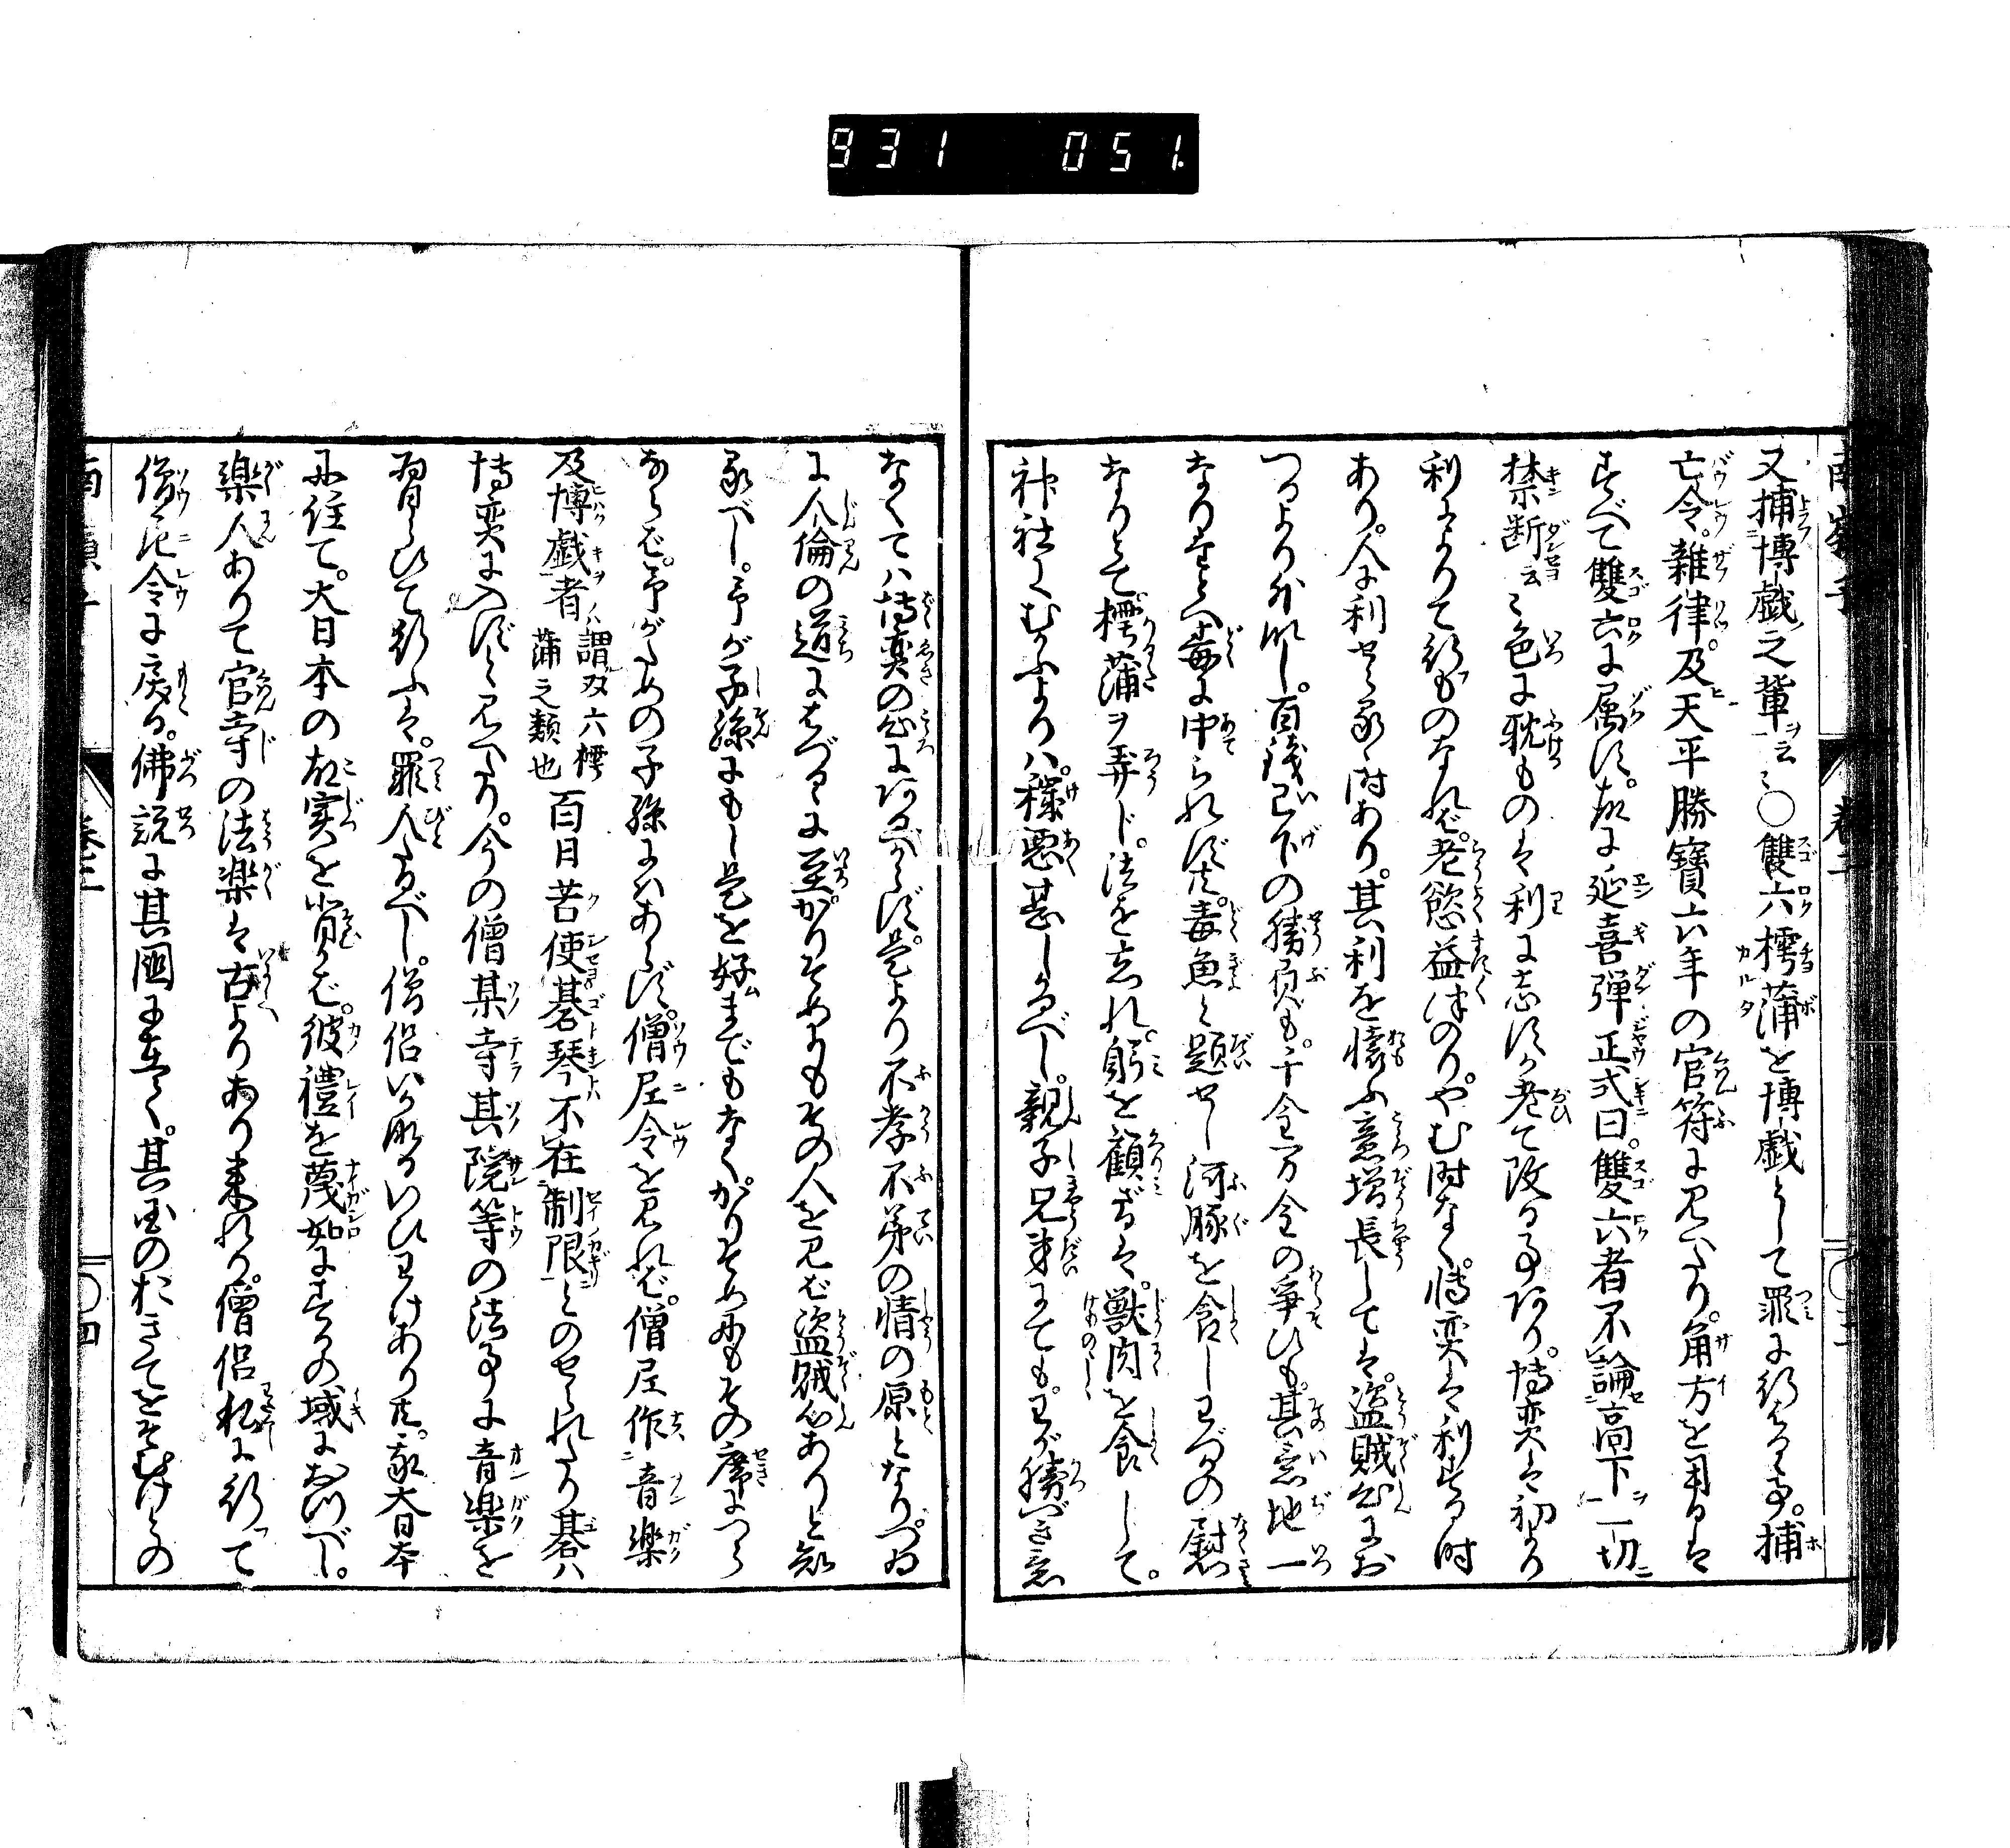 931 051
又捕博戯之輩云々○雙六樗蒲を博戯として罪に行はるる事。捕
亡令。雜律。及天平勝寳六年の官符に見へたり。角方を用るは
すべて雙六に属す。故に延喜彈正式曰。雙六者不論高下一切
禁断云々色に耽ものは利に志す。老て改る事あり。博奕は初より
利によりて行ものなれば。老慾益深のり。やむ時なく。博奕は利する時
あり。人に利せらるゝ時あり。其利を懐ふ意増長しては。盗賊心にお
つるより外なし。百銭已下の勝負も。千金万金の爭ひも。其意地一
なりたとへ毒に中られずとも。毒魚と題せし河豚を食しわづかの慰
なりとて。樗蒲ヲ弄じ。法を忘れ。躬を顧ざるは。獸肉を食して。
神社にむかふよりハ。穢悪甚しかるべし。親子兄弟にても。わが勝べき意
なくてハ博奕の心にあるべからず。是より不孝不弟の情の原となり。つゐ
に人倫の道にはづるゝに至。かりそめにもその人を見ば盗賊心ありと知
るべし。予が子孫にもし是を好までもなくかりそめにもその席につら
ならば。予がための子孫にハあらず。僧尼令を見れば。僧尼作音樂
及博戯者謂双六樗蒲之類也百日苦使碁琴不在制限とのせられたり碁ハ
博奕に入ずと見へたり。今の僧某寺其院等の法事に音樂を
習ひて行ふは。罪人なるべし。僧侶いかなるいひわけありとも。我大日本
に住て。大日本の故実を背かば。彼禮を蔑如にするの域におつべし。
樂人ありて官寺の法楽は古よりあり来れり。僧侶私に行つて
僧尼令に戻る。佛説に其國に至て。其国のおきてをそむけとの